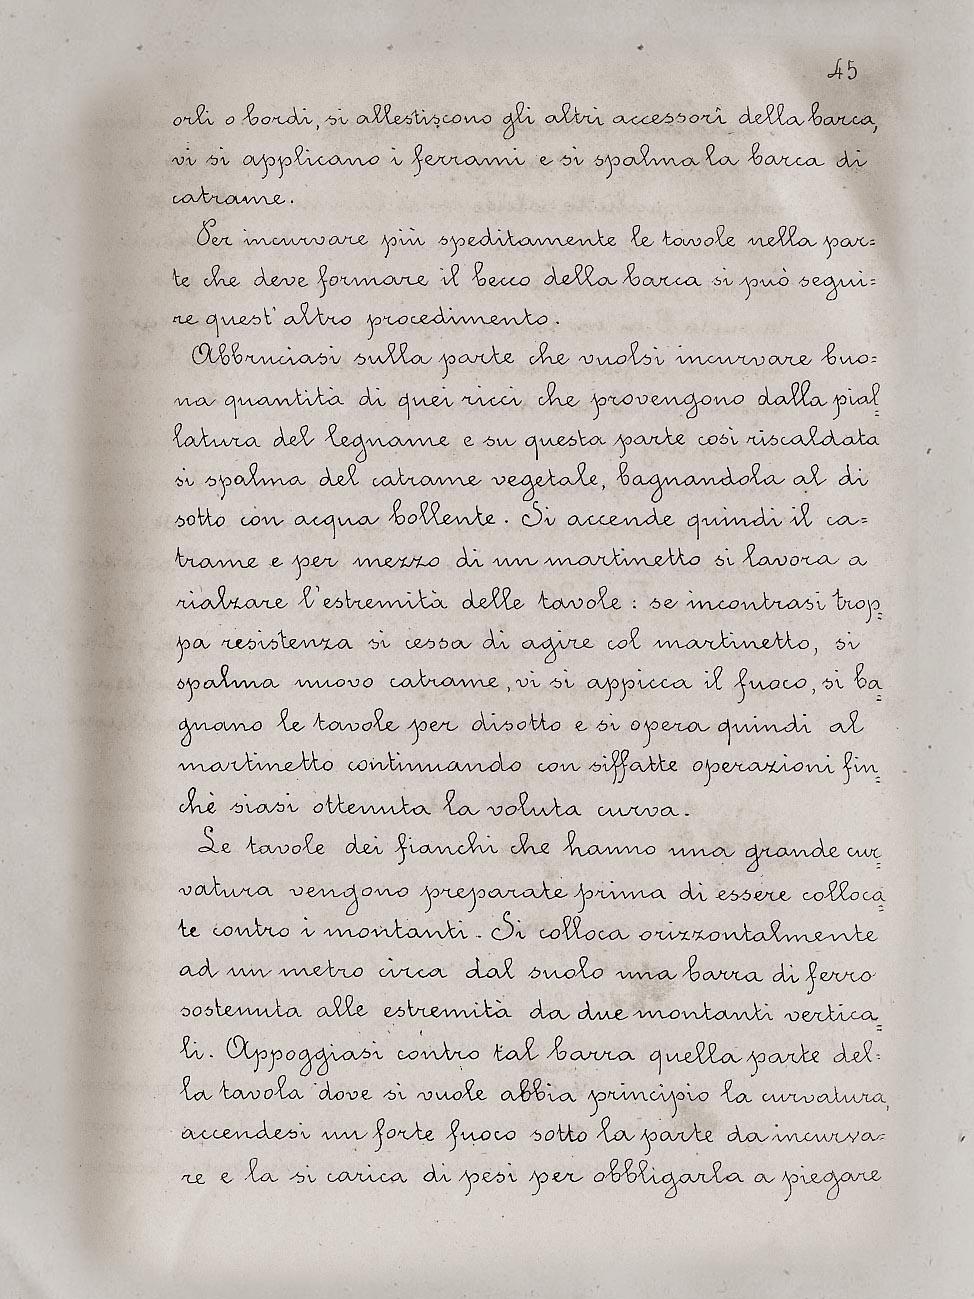 45
orli o bordi, si allestiscono gli altri accessorî della barca,
vi si applicano i ferrami e si spalma la barca di
catrame.
Per incurvare più speditamente le tavole nella par=
te che deve formare il becco della barca si può segui=
re quest'altro procedimento.
Abbruciasi sulla parte che vuolsi incurvare buo=
na quantità di quei ricci che provengono dalla pial=
latura del legname e su questa parte così riscaldata
si spalma del catrame vegetale, bagnandola al di
sotto con acqua bollente. Si accende quindi il ca=
trame e per mezzo di un martinetto si lavora a
rialzare l'estremità delle tavole: se incontrasi trop=
pa resistenza si cessa di agire col martinetto, si
spalma nuovo catrame, vi si appicca il fuoco, si ba=
gnano le tavole per disotto e si opera quindi al
martinetto continuando con siffatte operazioni fin=
chè siasi ottenuta la voluta curva.
Le tavole dei fianchi che hanno una grande cur=
vatura vengono preparate prima di essere colloca=
te contro i montanti. Si colloca orizzontalmente
ad un metro circa dal suolo una barra di ferro
sostenuta alle estremità da due montanti vertica=
li. Appoggiasi contro tal barra quella parte del=
la tavola dove si vuole abbia principio la curvatura,
accendesi un forte fuoco sotto la parte da incurva=
re e la si carica di pesi per obbligarla a piegare